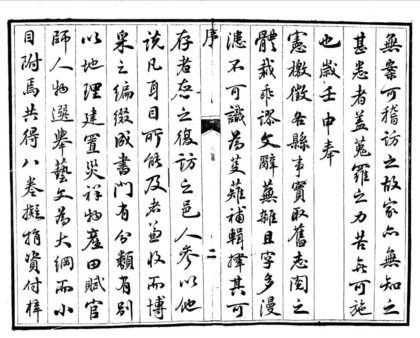 無案可稽訪之故家亦無知之
甚悉者蓋蒐羅之力苦無可施
也歲壬申奉
憲檄徵各縣事實取舊志閱之
體裁乖謬文辭蕪雜且字多漫
漶不可識為芟薙補輯擇其可
序
二
存者之復訪之邑人參以他
說凡耳目所能及者兼收而博
采之編綴成書門有分類有別
以地理建置災祥物產田賦官
師人物選舉藝文為大綱而小
目附焉共得八卷擬捐資付梓